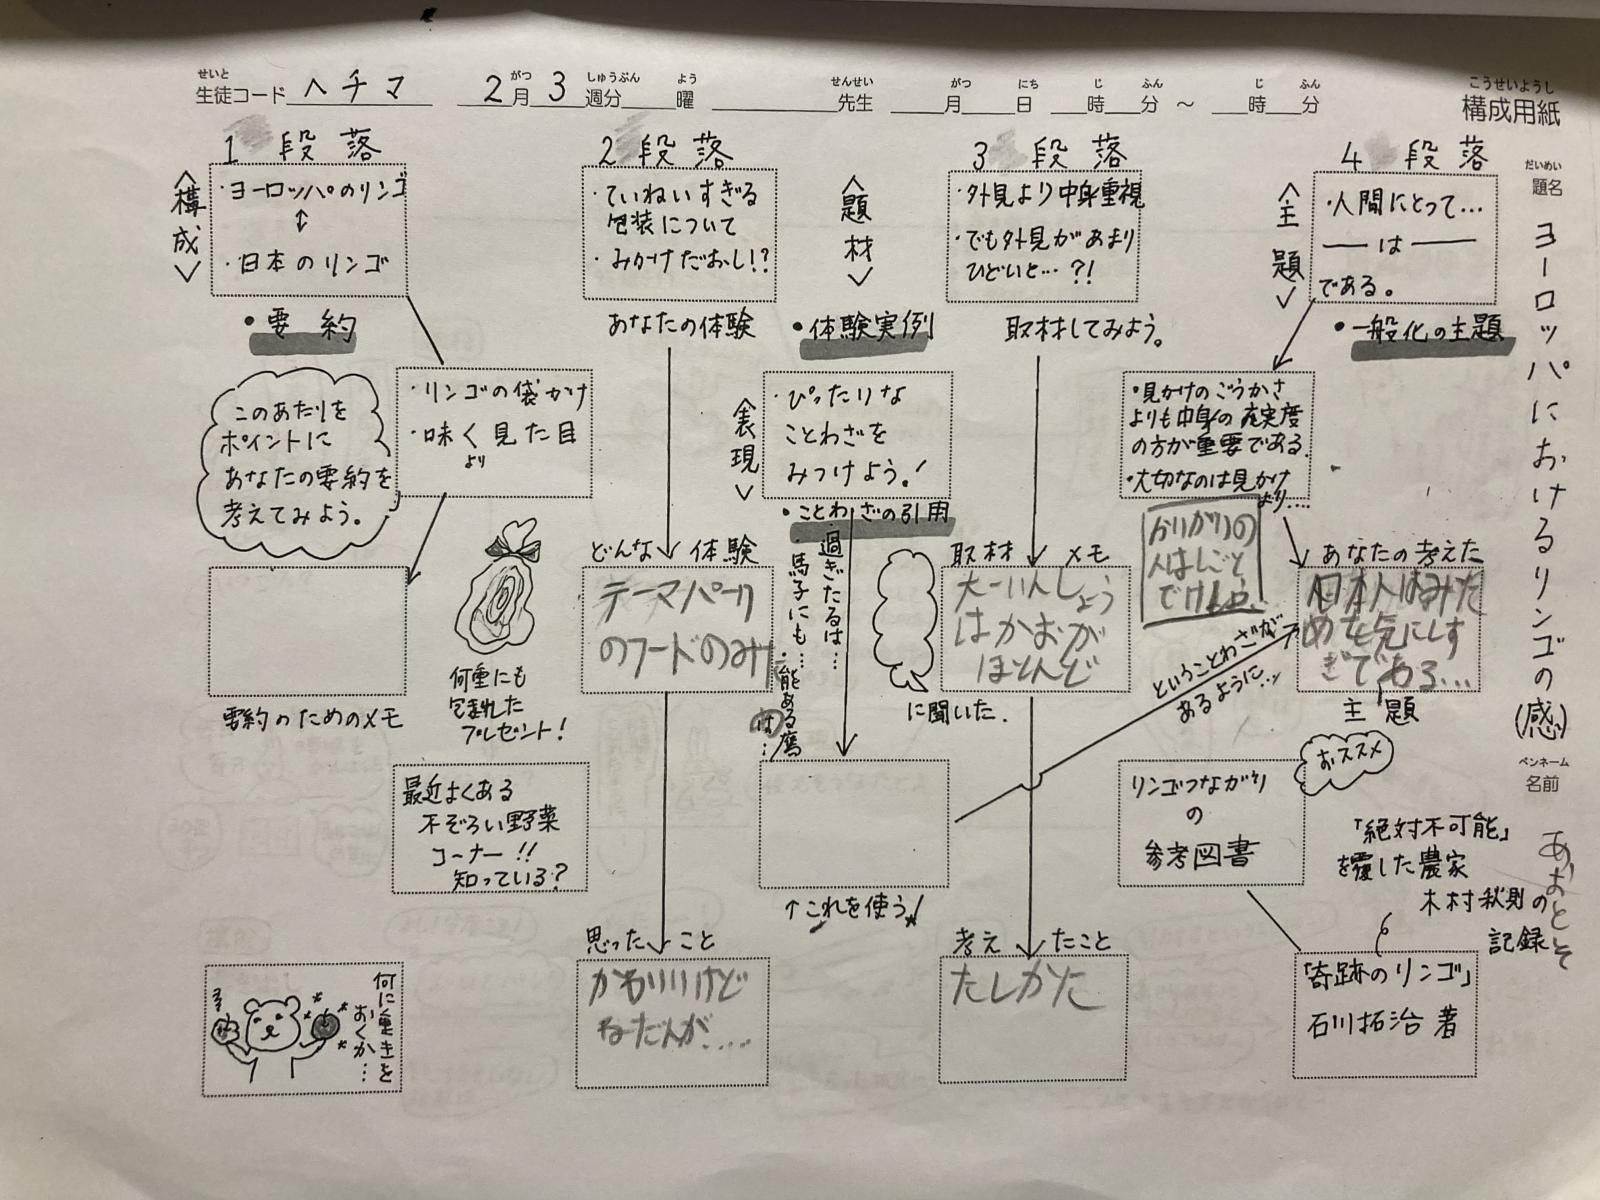 せいと がつ しゅうぶん よう せんせい がつ にち じ ふん じ ふん こうせいようし
生徒コード ヘチマ 2月3週分 曜 先生 月 日 時 分 ～ 時 分 構成用紙
だいめい
題名
ヨーロッパにおけるリンゴの(感)
ペンネーム
名前
あおとそ
1段落
〈構成〉
・ヨーロッパのリンゴ
↕
・日本のリンゴ
・要約
・リンゴの袋かけ
・味く見た目
より
このあたりを
ポイントに
あなたの要約を
考えてみよう。
要約のためのメモ
何重にも
包まれた
プレゼント!
最近よくある
不ぞろい野菜
コーナー!!
知っている?
何に重きを
おくか…
2段落
・ていねいすぎる
包装について
・みかけだおし!?
あなたの体験
どんな体験
テーマパーク
のフードのみ
思ったこと
かわいいけど
ねだんが....
〈題材〉
・体験実例
〈表現〉
・ぴったりな
ことわざを
みつけよう!
・ことわざの引用
過ぎたるは…
馬子にも…
能ある鷹
は…
↑これを使う!
3段落
・外見より中身重視
・でも外見があまり
ひどいと…?!
取材してみよう。
取材メモ
大一いんしょう
はかおが
ほとんど
に聞いた.
考えたこと
たしかた
4段落
〈主題〉
・人間にとって…
── は ──
である。
・一般化の主題
・見かけのごうかさ
よりも中身の充実度
の方が重要である.
・大切なのは見かけ
より....
かりがりの
人はしごと
ということわざが
あるように…
あなたの考えた
日本人はみた
めを気にしす
ぎである…
主題
おススメ
リンゴつながり
の
参考図書
「絶対不可能」
を覆した農家
木村秋則の
記録
「奇跡のリンゴ」
石川拓治 著